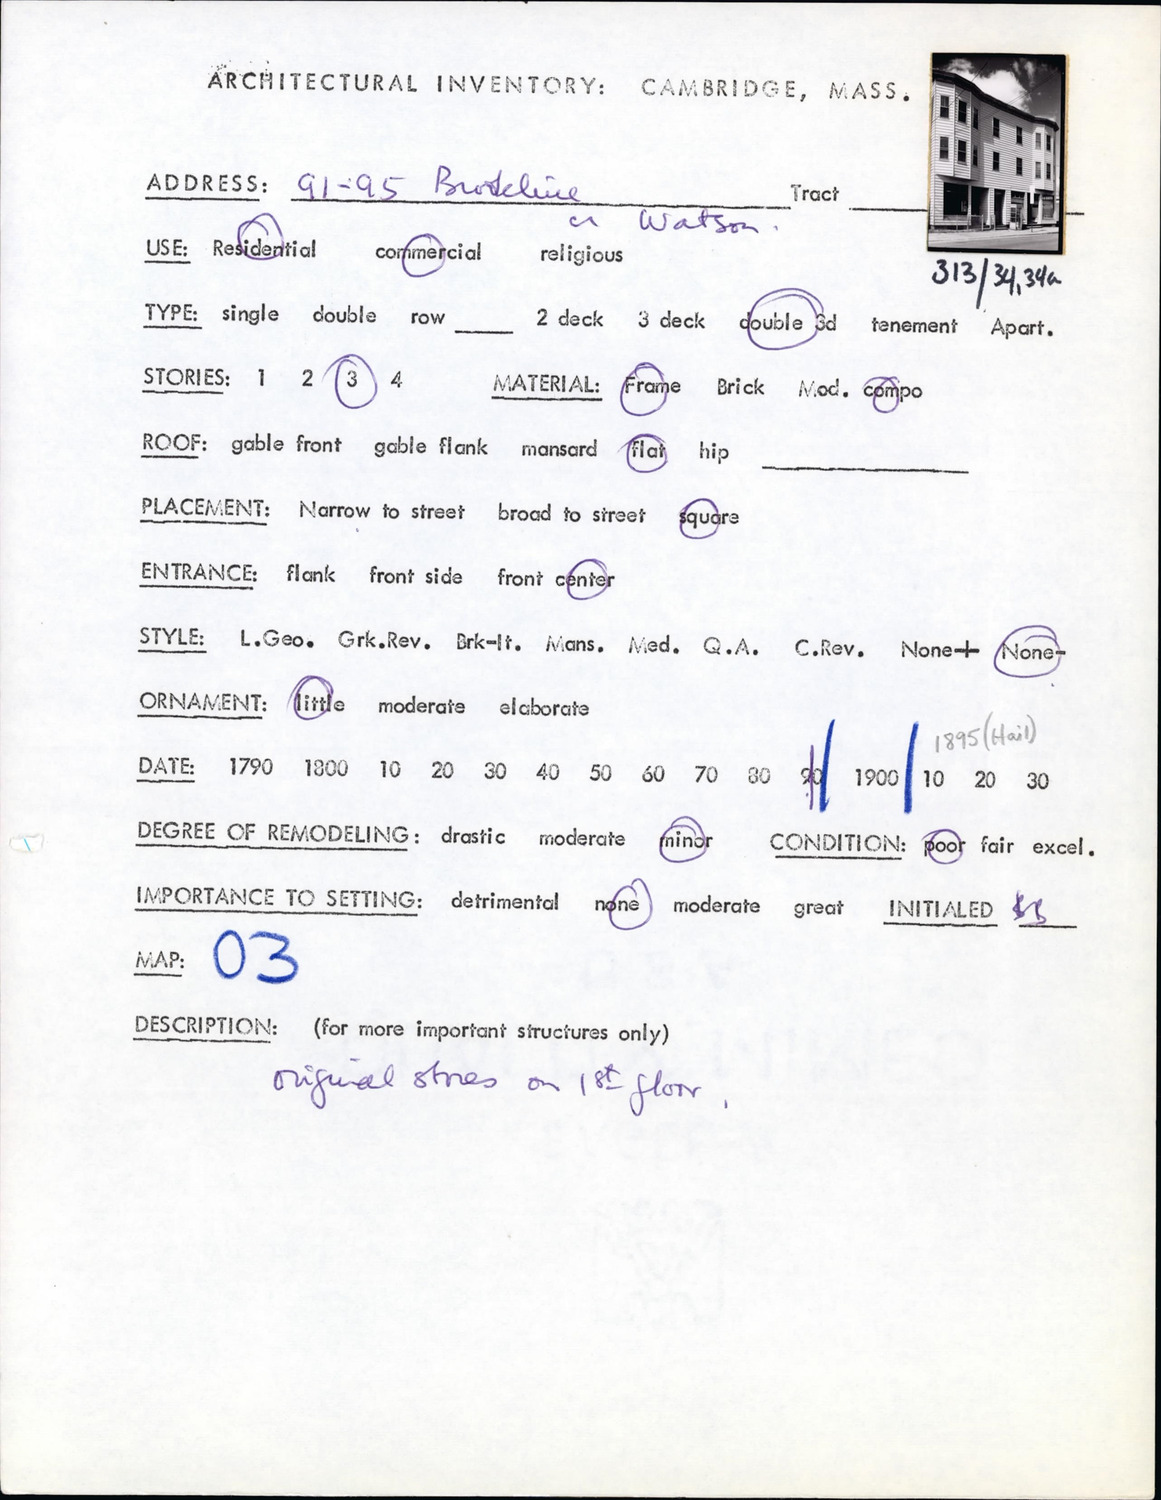 ARCHITECTURAL INVENTORY: CAMBRIDGE, MASS.
ADDRESS: 91-95 Brookline Tract
cr Watson.
313/34,34a
USE: Residential commercial religious
TYPE: single double row ____ 2 deck 3 deck double 3d tenement Apart.
STORIES: 1 2 3 4 MATERIAL: Frame Brick Mod. compo
ROOF: gable front gable flank mansard flat hip
PLACEMENT: Narrow to street broad to street square
ENTRANCE: flank front side front center
STYLE: L.Geo. Grk.Rev. Brk-It. Mans. Med. Q.A. C.Rev. None+ None-
ORNAMENT: little moderate elaborate
1895 (Hail)
DATE: 1790 1800 10 20 30 40 50 60 70 80 90 1900 10 20 30
DEGREE OF REMODELING: drastic moderate minor CONDITION: poor fair excel.
IMPORTANCE TO SETTING: detrimental none moderate great INITIALED
MAP: 03
DESCRIPTION: (for more important structures only)
original stores on 1st floor.